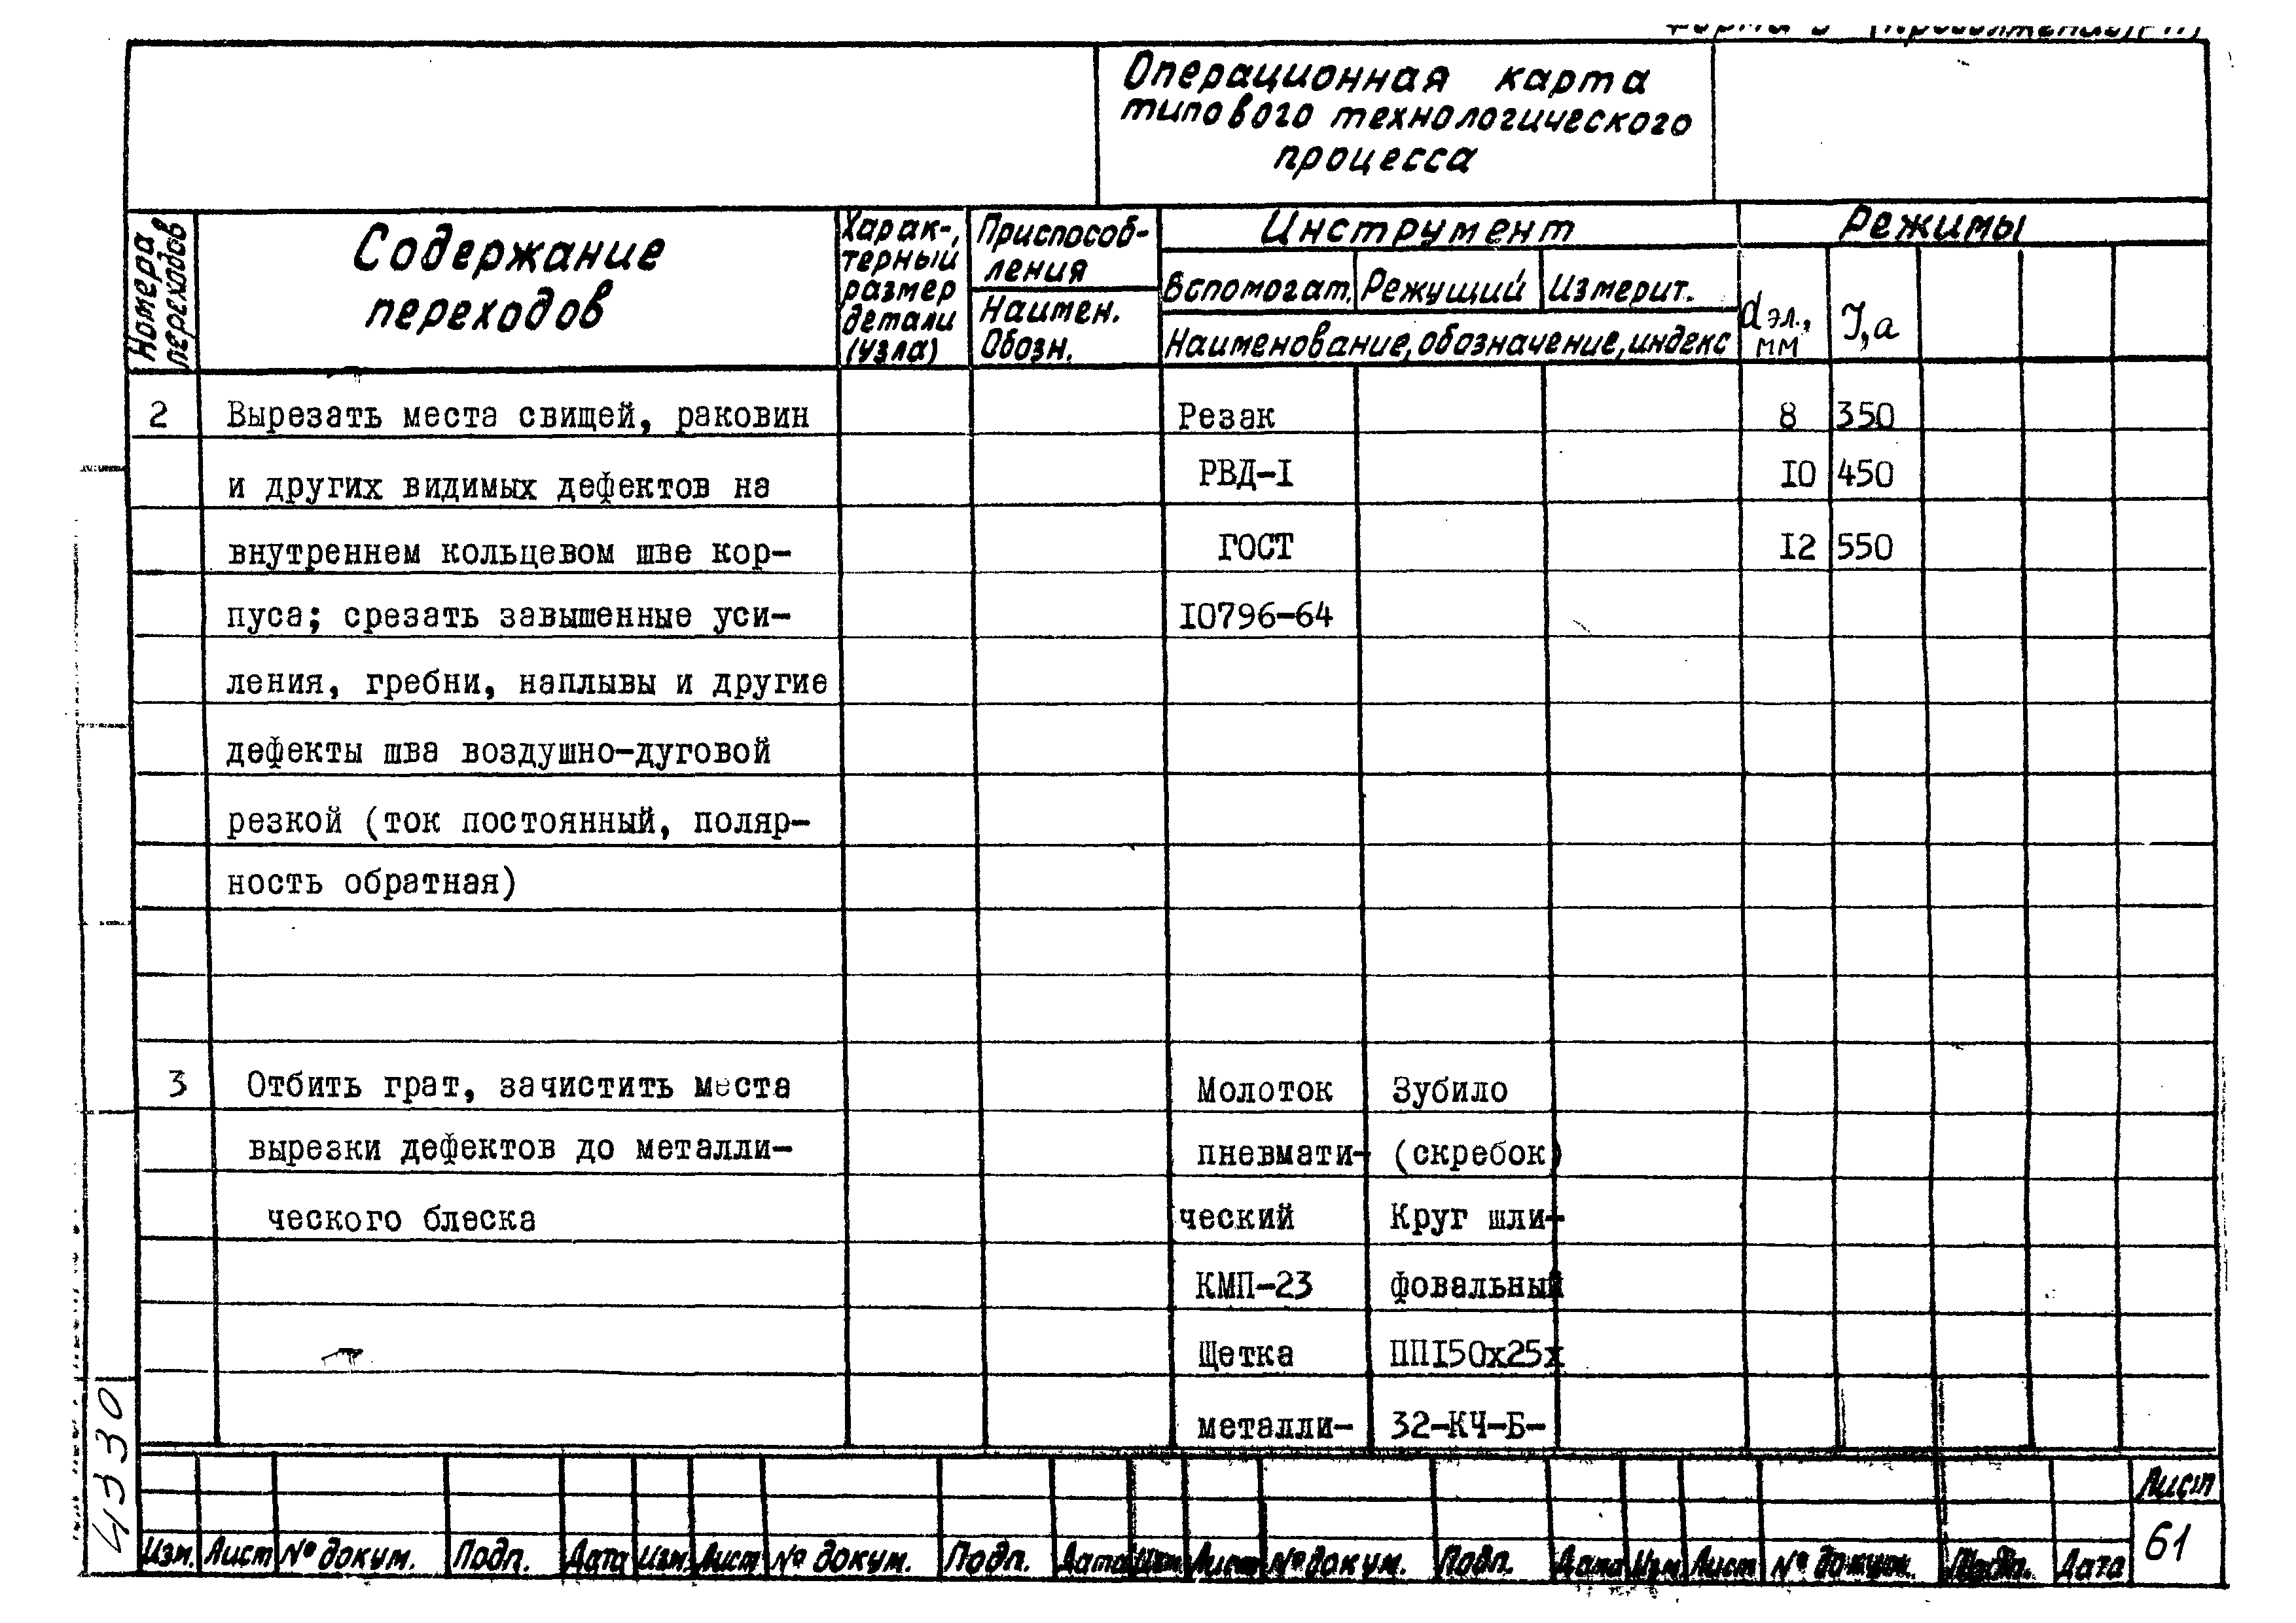 Операционная карта
типового технологического
процесса
Номера
переходов
Содержание
переходов
Харак-
терный
размер
детали
(узла)
Приспособ-
ления
Наимен.
Обозн.
Инструмент
Вспомогат. Режущий Измерит.
Наименование, обозначение, индекс
Режимы
dэл.,
мм
J,а
2 Вырезать места свищей, раковин Резак 8 350
и других видимых дефектов на РВД-I I0 450
внутреннем кольцевом шве кор- ГОСТ I2 550
пуса; срезать завышенные уси- I0796-64
ления, гребни, наплывы и другие
дефекты шва воздушно-дуговой
резкой (ток постоянный, поляр-
ность обратная)
3 Отбить грат, зачистить места Молоток Зубило
вырезки дефектов до металли- пневмати- (скребок)
ческого блеска ческий Круг шли-
КМП-23 фовальный
Щетка ППI50х25х
металли- 32-КЧ-Б-
4330
Лист
61
Изм. Лист № докум. Подп. Дата Изм. Лист № докум. Подп. Дата Изм. Лист № докум. Подп. Дата Изм Лист № докум. Подп. Дата